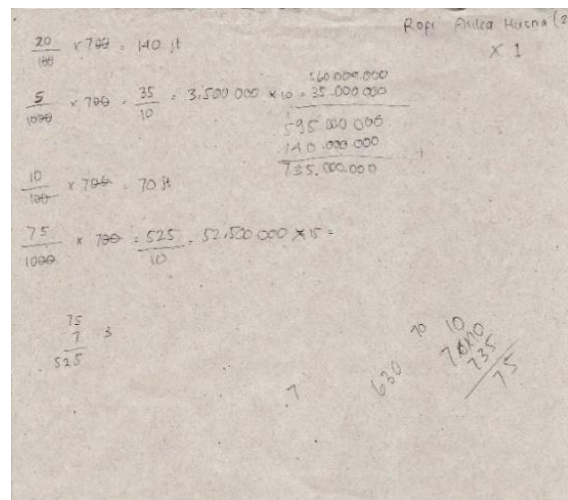 Ropi Aulia Husna (2
X 1
20/100 x 700 = 140 jt
5/1000 x 700 = 35/10 = 3.500 000 x 10 = 35.000 000
560.000.000
595 000 000
140.000.000 +
735.000.000
10/100 x 700 = 70 jt
75/1000 x 700 = 525/10 = 52.500 000 X 15 =
75
7
525
3
7
630
70
10
735
75